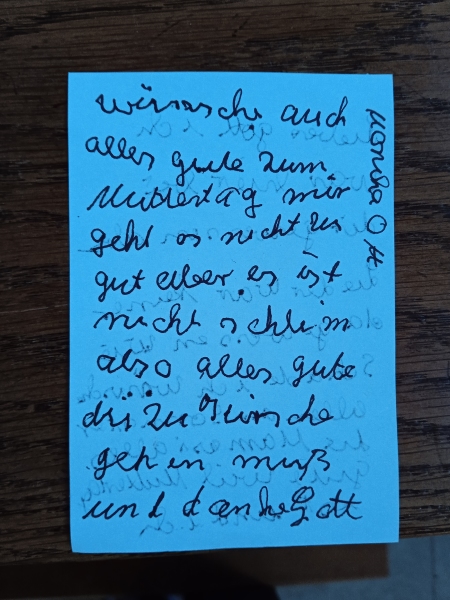 wünsche auch
alles gute zum
Muttertag mir
geht es nicht zu
gut aber es ist
nicht schlim
also alles gute
die zu
gehen muß
und danke Gott